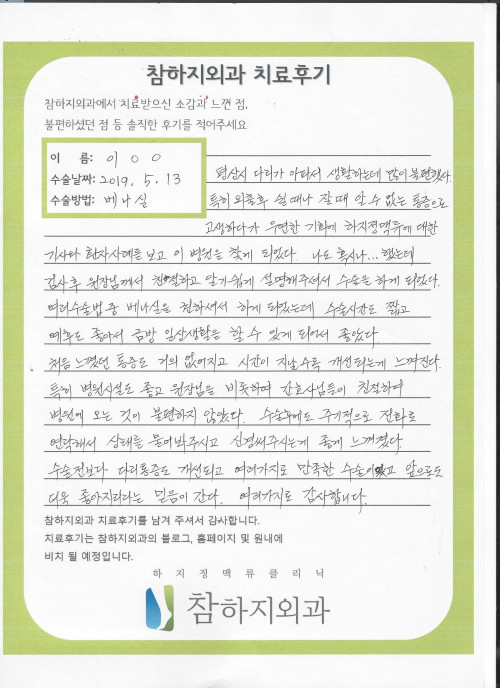 참하지외과 치료후기
참하지외과에서 치료받으신 소감과 느낀 점,
불편하셨던 점 등 솔직한 후기를 적어주세요
이 름: 이 ㅇ ㅇ
수술날짜: 2019. 5. 13
수술방법: 베나실
평상시 다리가 아파서 생활하는데 많이 불편했다.
특히 외출후 쉴때나 잘때 알 수 없는 통증으로
고생하다가 우연한 기회에 하지정맥류에 대한
기사와 환자사례를 보고 이 병원을 찾게 되었다. 나도 혹시나... 했는데
검사후 원장님께서 친절하고 알기쉽게 설명해주셔서 수술을 하게 되었다.
여러수술법 중 베나실을 권하셔서 하게 되었는데 수술시간도 짧고
예후도 좋아서 금방 일상생활을 할 수 있게 되어서 좋았다.
처음 느꼈던 통증도 거의 없어지고 시간이 지날수록 개선되는게 느껴진다.
특히 병원시설도 좋고 원장님을 비롯하여 간호사님들이 친절하여
병원에 오는 것이 불편하지 않았다. 수술후에도 주기적으로 전화로
연락해서 상태를 물어봐주시고 신경써주시는게 좋게 느껴졌다
수술전보다 다리통증도 개선되고 여러가지로 만족한 수술이었고 앞으로도
더욱 좋아지리라는 믿음이 간다. 여러가지로 감사합니다.
참하지외과 치료후기를 남겨 주셔서 감사합니다.
치료후기는 참하지외과의 블로그, 홈페이지 및 원내에
비치 될 예정입니다.
하지정맥류클리닉
참하지외과